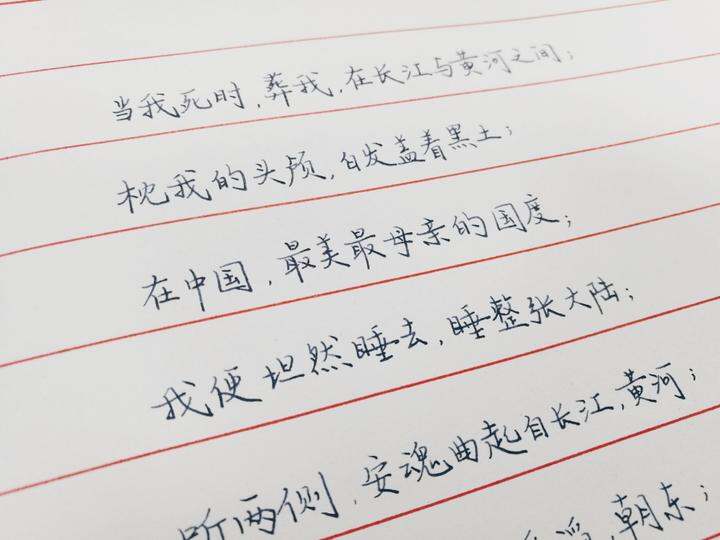 当我死时,葬我,在长江与黄河之间;
枕我的头颅,白发盖着黑土;
在中国,最美最母亲的国度;
我便坦然睡去,睡整张大陆;
听两侧,安魂曲起自长江,黄河;
滔,朝东;